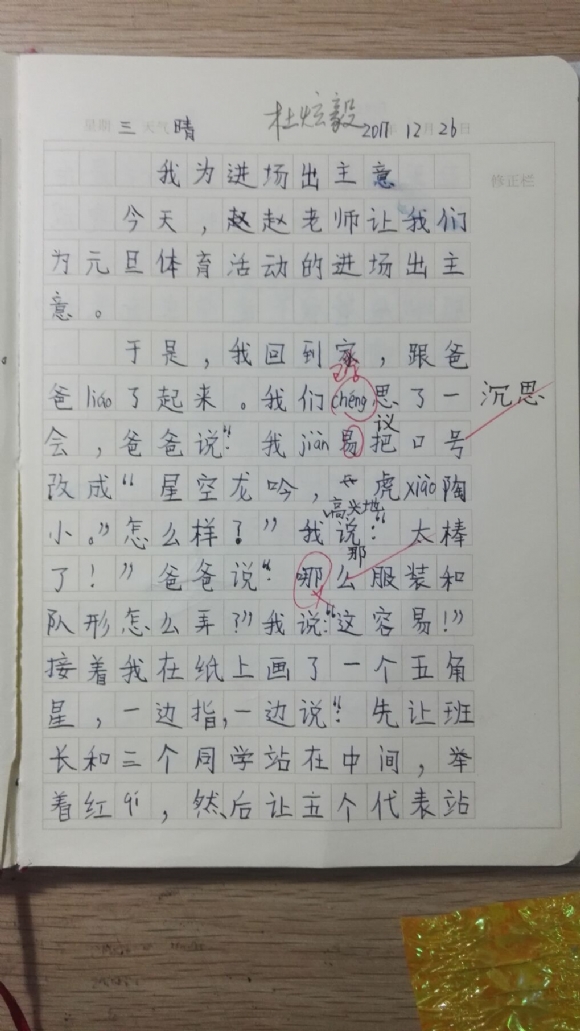 星期 三 天气 晴 杜炫毅 2017年12月26日
修正栏
我为进场出主意
今天，赵赵老师让我们
为元旦体育活动的进场出主
意。
于是，我回到家，跟爸
爸liáo了起来。我们chéng思了一 沉思
会，爸爸说：“我jiàn易把口号
议
改成“星空龙吟，虎xiào陶
高兴地
小。”怎么样？”我说：“太棒
那
了！”爸爸说：“哪么服装和
队形怎么弄？”我说：“这容易！”
接着我在纸上画了一个五角
星，一边指，一边说：“先让班
长和三个同学站在中间，举
着红qí，然后让五个代表站